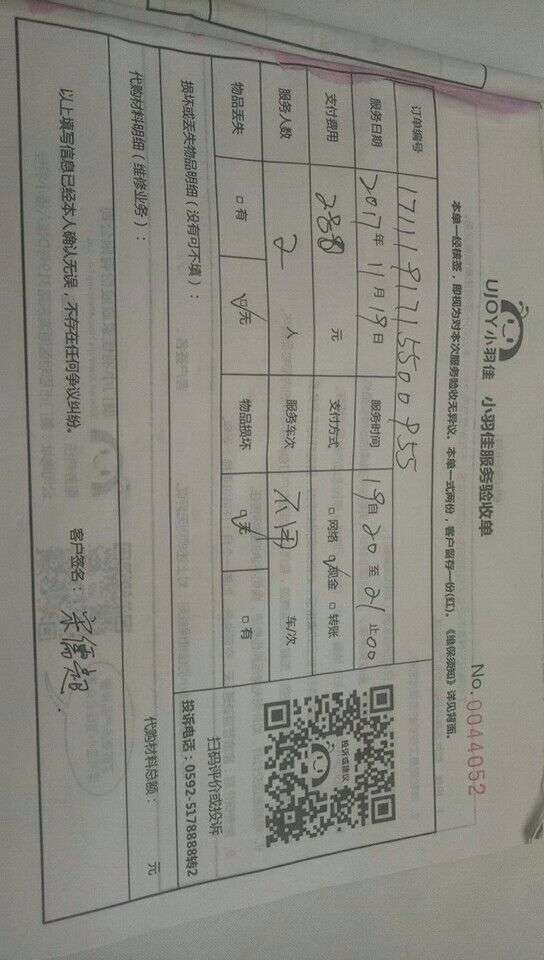 UJOY小羽佳 小羽佳服务验收单
No.0044052
本单一经核签，即视为对本次服务验收无异议。本单一式两份，客户留存一份(红)。《维保须知》详见背面。
订单编号
服务日期 2017年11月19日 服务时间 19自20至21止00
支付费用 288 元 支付方式 □网络 ☑现金 □转账
服务人数 2 人 服务车次 不用 车/次
物品丢失 □有 ☑无 物品损坏 ☑无 □有
投诉或建议
扫码评价或投诉
投诉电话：0592-5178888转2
损坏或丢失物品明细（没有可不填）：
代购材料明细（维修业务）：
代购材料总额： 元
以上填写信息已经本人确认无误，不存在任何争议纠纷。 客户签名：